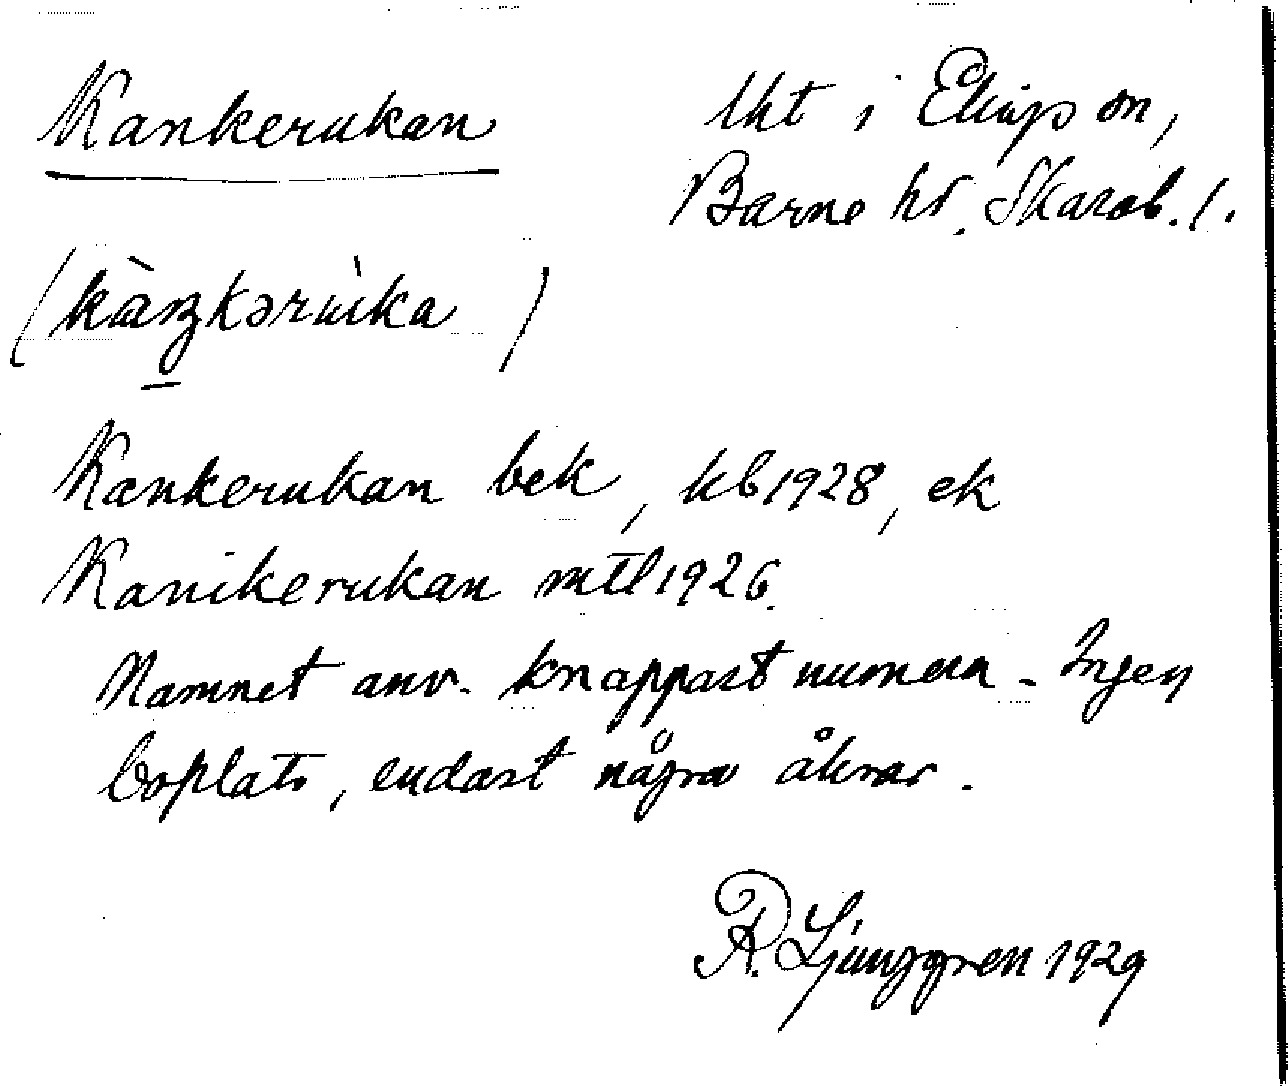 Kankerukan
Uht i Elings sn,
Barne hd. Skarab. l.
(kàŋkərùka)
Kankerukan bek, kb1928, ek
Kanikerukan mtl1926.
Namnet anv. knappast numera. Ingen
boplats, endast några åkrar.
R. Ljunggren 1929